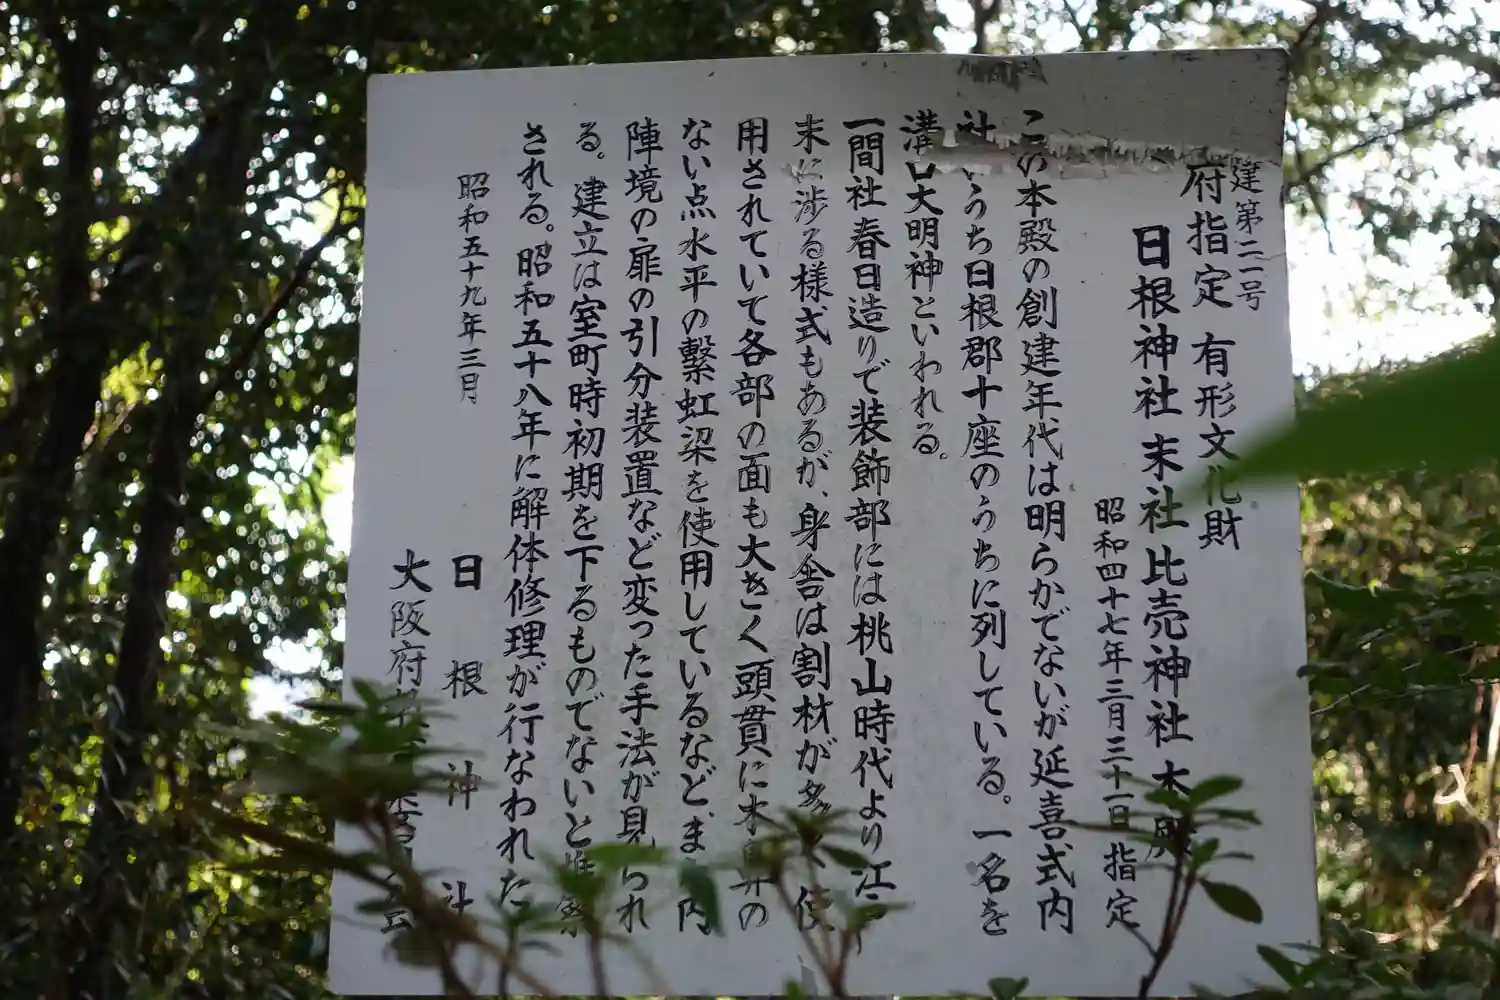 建第二一号
府指定 有形文化財
日根神社末社比売神社本殿
昭和四十七年三月三十一日指定
この本殿の創建年代は明らかでないが延喜式内
社のうち日根郡十座のうちに列している。一名を
溝口大明神といわれる。
一間社春日造りで装飾部には桃山時代より江戸
末に渉る様式もあるが、身舎は割材が多く使
用されていて各部の面も大きく頭貫に木鼻の
ない点水平の繋虹梁を使用しているなど、また内
陣境の扉の引分装置など変った手法が見られ
る。建立は室町時初期を下るものでないと推察
される。昭和五十八年に解体修理が行なわれた
昭和五十九年三月
日根神社
大阪府教育委員会